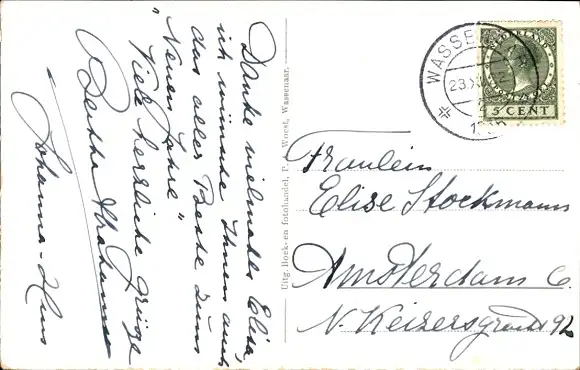 Danke vielmals Elisa,
ich wünsche Ihnen auch
das aller Beste zum
"Neuen Jahre"
Viele herzliche Grüsse
Bertha Abrahamse
Johanna-Huis
Uitg. Boek- en fotohandel, P. v. d. Woest, Wassenaar.
WASSENAAR
23.XII
NEDERLAND
5 CENT
Fräulein
Elise Stockmann
Amsterdam C.
N. Keizersgracht 92